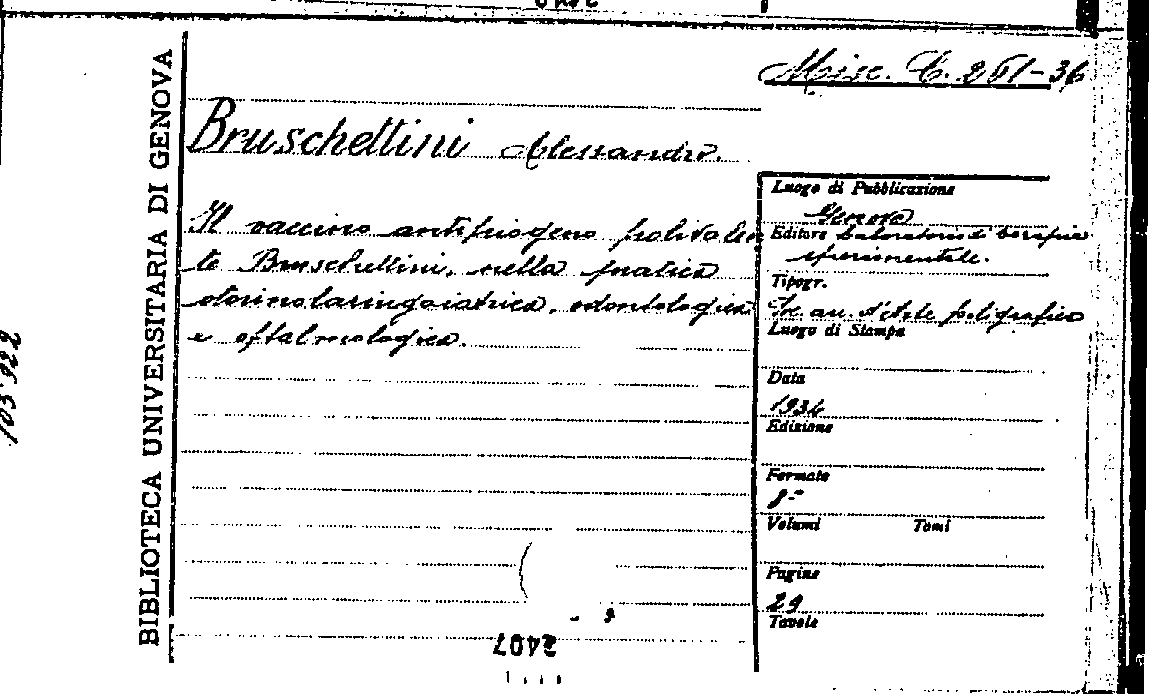 BIBLIOTECA UNIVERSITARIA DI GENOVA
Misc. C. 261-36
Bruschettini Alessandro.
Il vaccino antipiogeno polivalen
te Bruschettini, nella pratica
otorinolaringoiatrica, odontologica
e oftalmologica.
Luogo di Pubblicazione
Genova
Editore Laboratorio di terapia
sperimentale.
Tipogr.
d'Arte poligrafica
Luogo di Stampa
Data
1934
Edizione
Formato
8°
Volumi Tomi
Pagine
29
Tavole
2407
103922